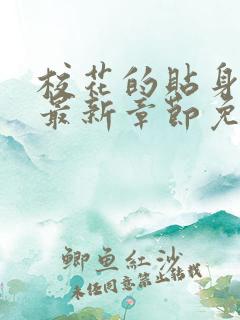 校花的贴身
最新章節免
鯽魚紅沙
未经同意禁止转载